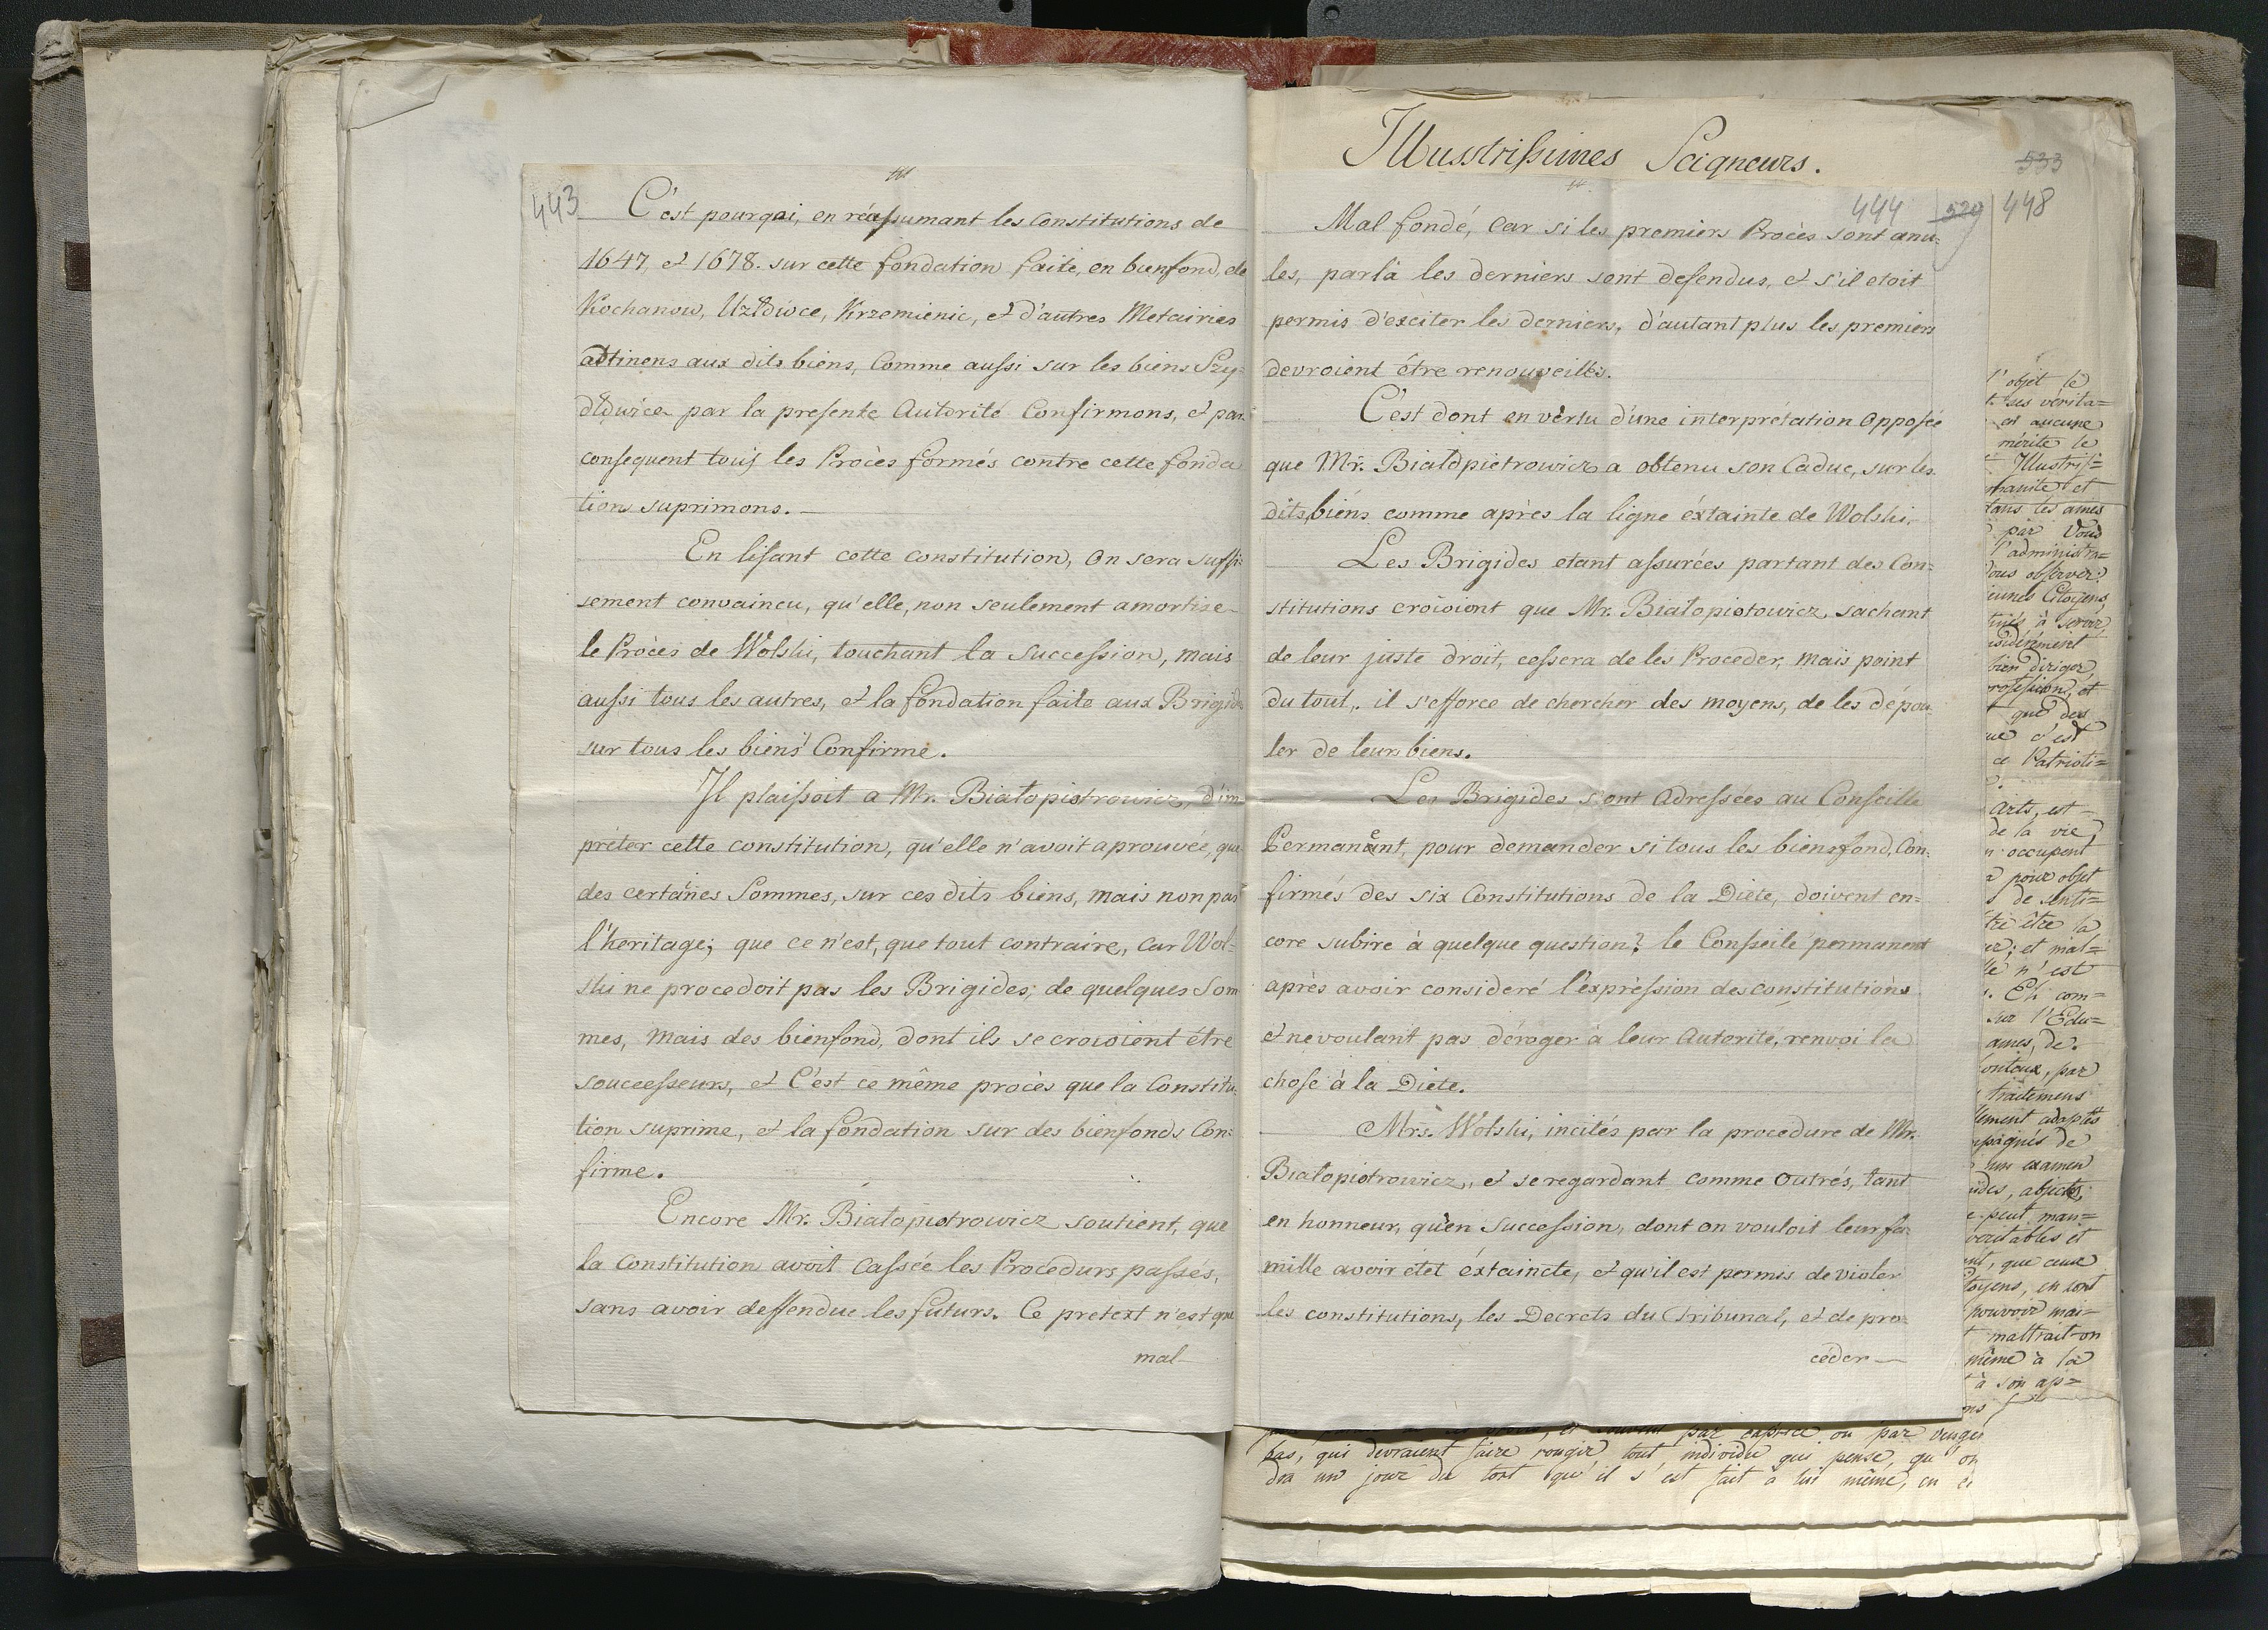 443
C'est pourqoi, en réassumant les constitutions de
1647, et 1678. sur cette fondation faite, en bienfond, de
Kochanow, Uzłdwoce, Krzemienic, et d'autres Metairies
adtinens aux dits biens, Comme aussi sur les biens Szy-
dłdwice par la presente Autorité Confirmons, et par
consequent tous les Procès formés contre cette fonda
tion suprimons.
En lisant cette constitution, on sera suffi-
sement convaincu, qu'elle, non seulement amortise
le Procès de Wolski, touchant la Succession, mais
aussi tous les autres, et la fondation faite aux Brigides
sur tous les biens Confirme.
Il plaissoit a Mr. Białopiotrowicz, d'im-
prèter cette constitution, qu'elle n'avoit aprouvée, que
des certaines Sommes, sur ces dits biens, mais non pas
l'heritage; que ce n'est, que tout contraire, car Wol-
ski ne procedoit pas les Brigides; de quelques Som
mes, mais des bienfond, dont ils se croioient être
souccesseurs, et C'est ce même procès que la Constitu-
tion suprime, et la fondation sur des bienfonds Con-
firme.
Encore Mr. Białopiotrowicz soutient, que
la Constitution avoit Cassée les Procedurs passés,
sans avoir deffendue les futurs. Ce pretext n'est que
mal
Illusstrissimes Seigneurs.
533
444 529 448
Mal fondé, Car si les premiers Procès sont anu-
les, parlà les derniers sont defendus, et s'il etoit
permis d'exciter les derniers, d'autant plus les premiers
devroient être renouveillés.
C'est dont en vèrtu d'une interprétation Opposée
que Mr. Białdpietrowicz a obtenu son Caduc, sur les
dits biéns comme après la ligne éxtainte de Wolski,
Les Brigides etant assurées partant des Con-
stitutions croioiont que Mr. Białopiotowicz sachant
de leur juste droit, cessera de les Proceder, mais point
du tout, il s'efforce de chercher des moyens, de les dépou
ler de leurs biens.
Les Brigides s'ont Adressées au Conseille
Permanent, pour demander si tous les biensfond, Con-
firmés des six Constitutions de la Diète, doivent en-
core subire à quelque question? le Conseile permanent
après avoir consideré l'éxpréssion des constitutions
et ne voulant pas déroger à leur Autorité, renvoi la
chose à la Diete.
Mrs. Wolski, incités par la procedure de Mr.
Białopiotrowicz, et se regardant comme outrés, tant
en honneur, qu'en Succession, dont on vouloit leur fa-
mille avoir étet éxtaincte, et qu'il est permis de violer
les constitutions, les Decrets du Tribunal, et de pro-
céder
l'objet le
ses vérita=
et aucune
mérite le
Illustris=
et
dans les ames
par Vous
l'administra=
Vous observer
jeunes Citoyens,
à servir
bien diriger
profession, et
que des
que c'est
ce Patrioti=
Arts, est
de la vie,
occupent
a pour objet
de senti=
être la
et mal=
n'est
Eh com=
sur l'Edu=
ames, de
honteux, par
traitemens
adaptés
de
un examen
abjects,
peut man=
veritables et
que ceux
Citoyens, en sont
pouvoir mai=
mattrait-on
même à la
à son as=
par caprice ou par venge
pas, qui devraient faire rougir, tout individu qui pense, qu'on
dra un jour du tort qu'il s'est fait à lui même, en